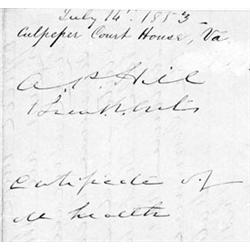 July 14. 1853
Culpeper Court House, Va.
A. P. Hill
Certificate of
ill health